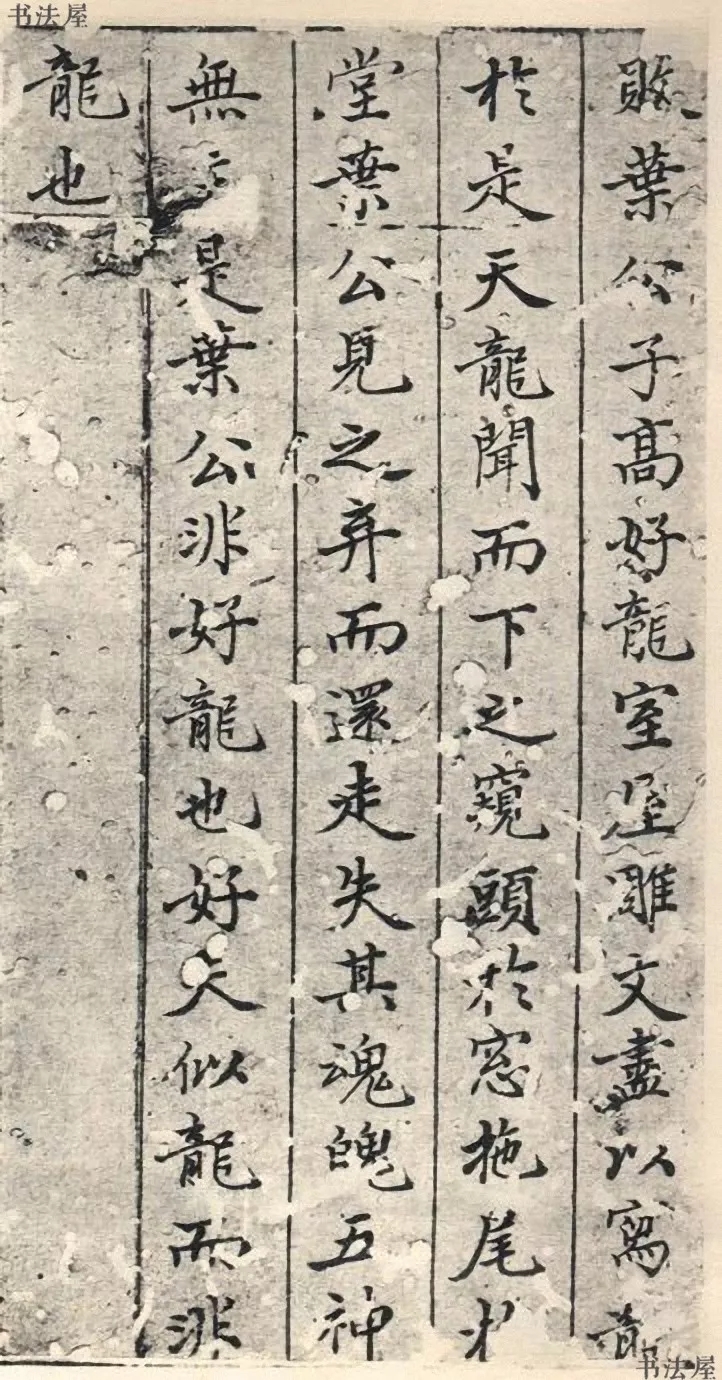 书法屋
敗葉公子高好龍室屋雕文盡以寫龍
於是天龍聞而下之窺頭於窓拖尾於
堂葉公見之弃而還走失其魂魄五神
無是葉公非好龍也好夫似龍而非
龍也
书法屋